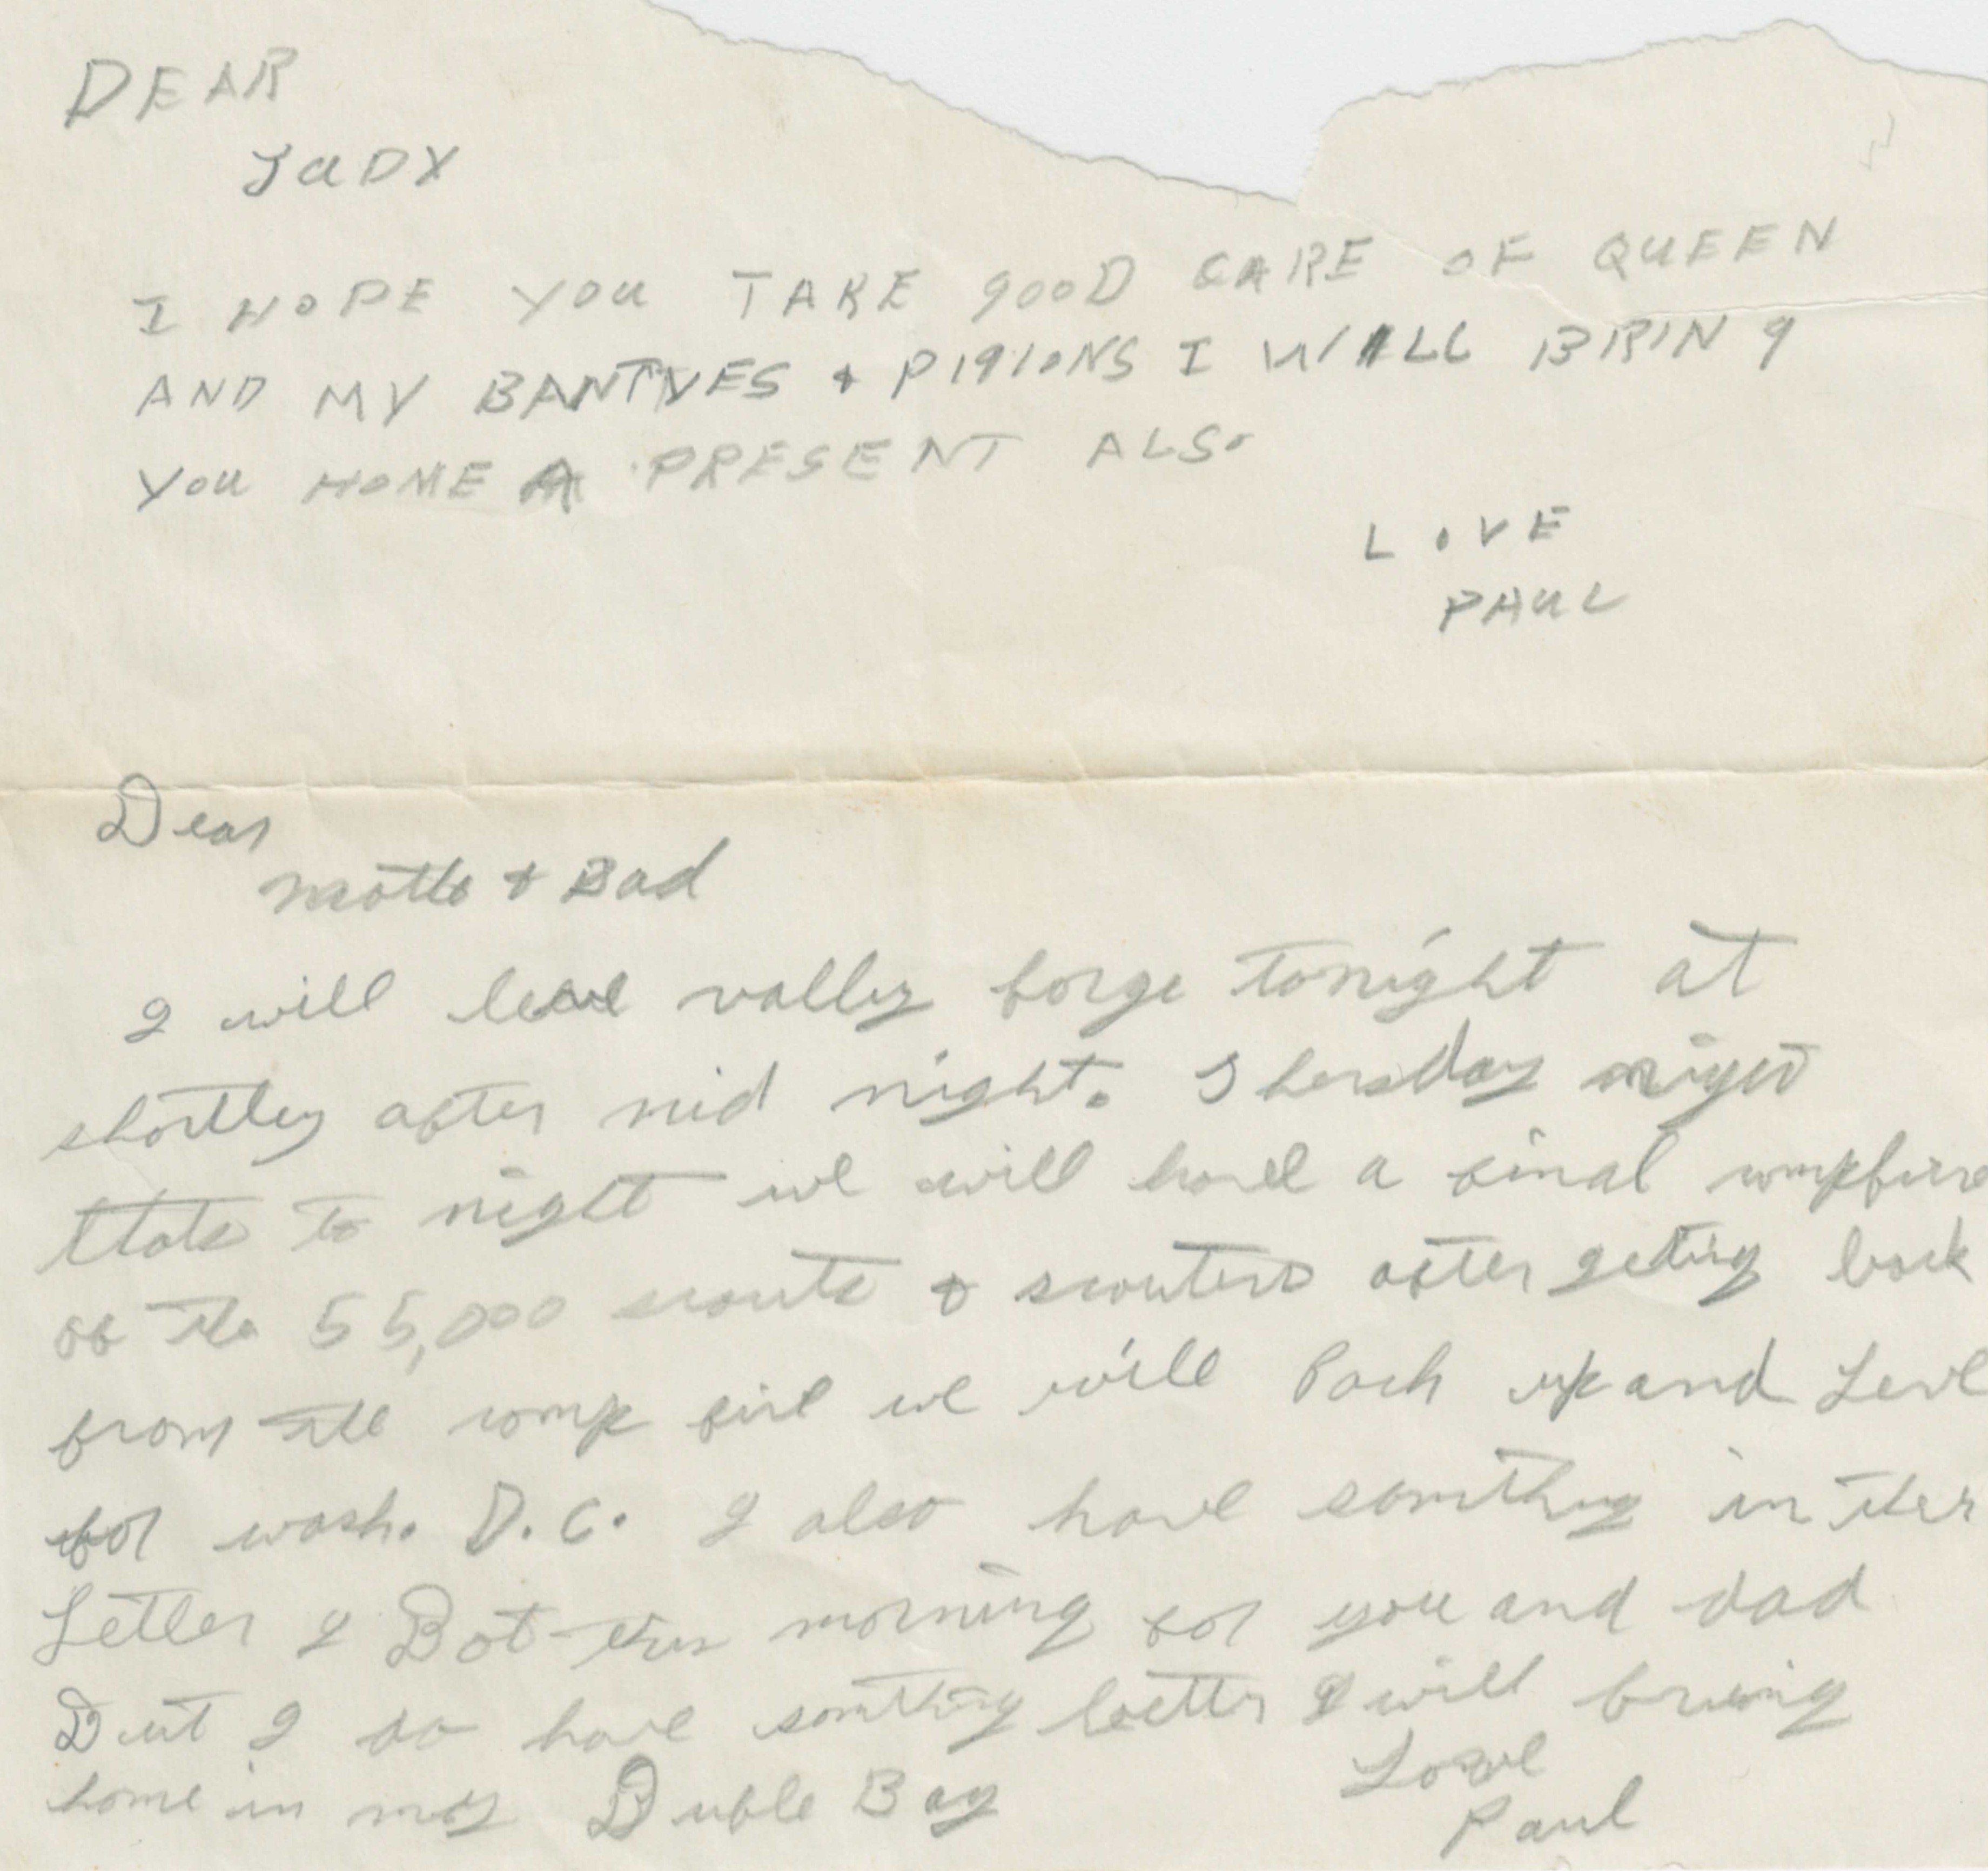 DEAR
JUDY
I HOPE YOU TAKE GOOD CARE OF QUEEN
AND MY BANTYES + PIGIONS I WILL BRING
YOU HOME A PRESENT ALSO
LOVE
PAUL
Dear
+ Dad
I will leave valley forge tonight at
shortley after mid night. Thersday night
thats to night we will have a final campfire
of the 55,000 scouts & scouters after geting back
from the camp fire we will Pack up and Leve
for wash. D.C. I also have somthing in
Letter I Bot this morning for you and dad
But I do have somthing better I will bring
home in my Duffle Bag
Love
Paul